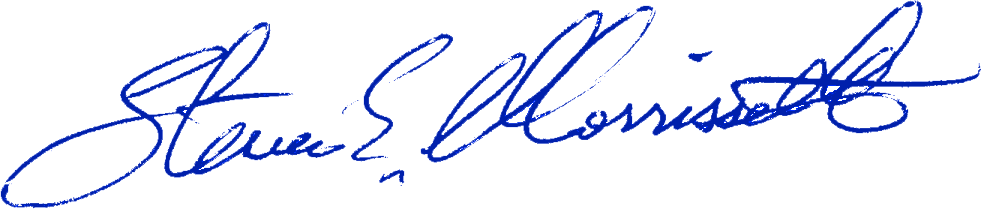 Steven E. Morrissette